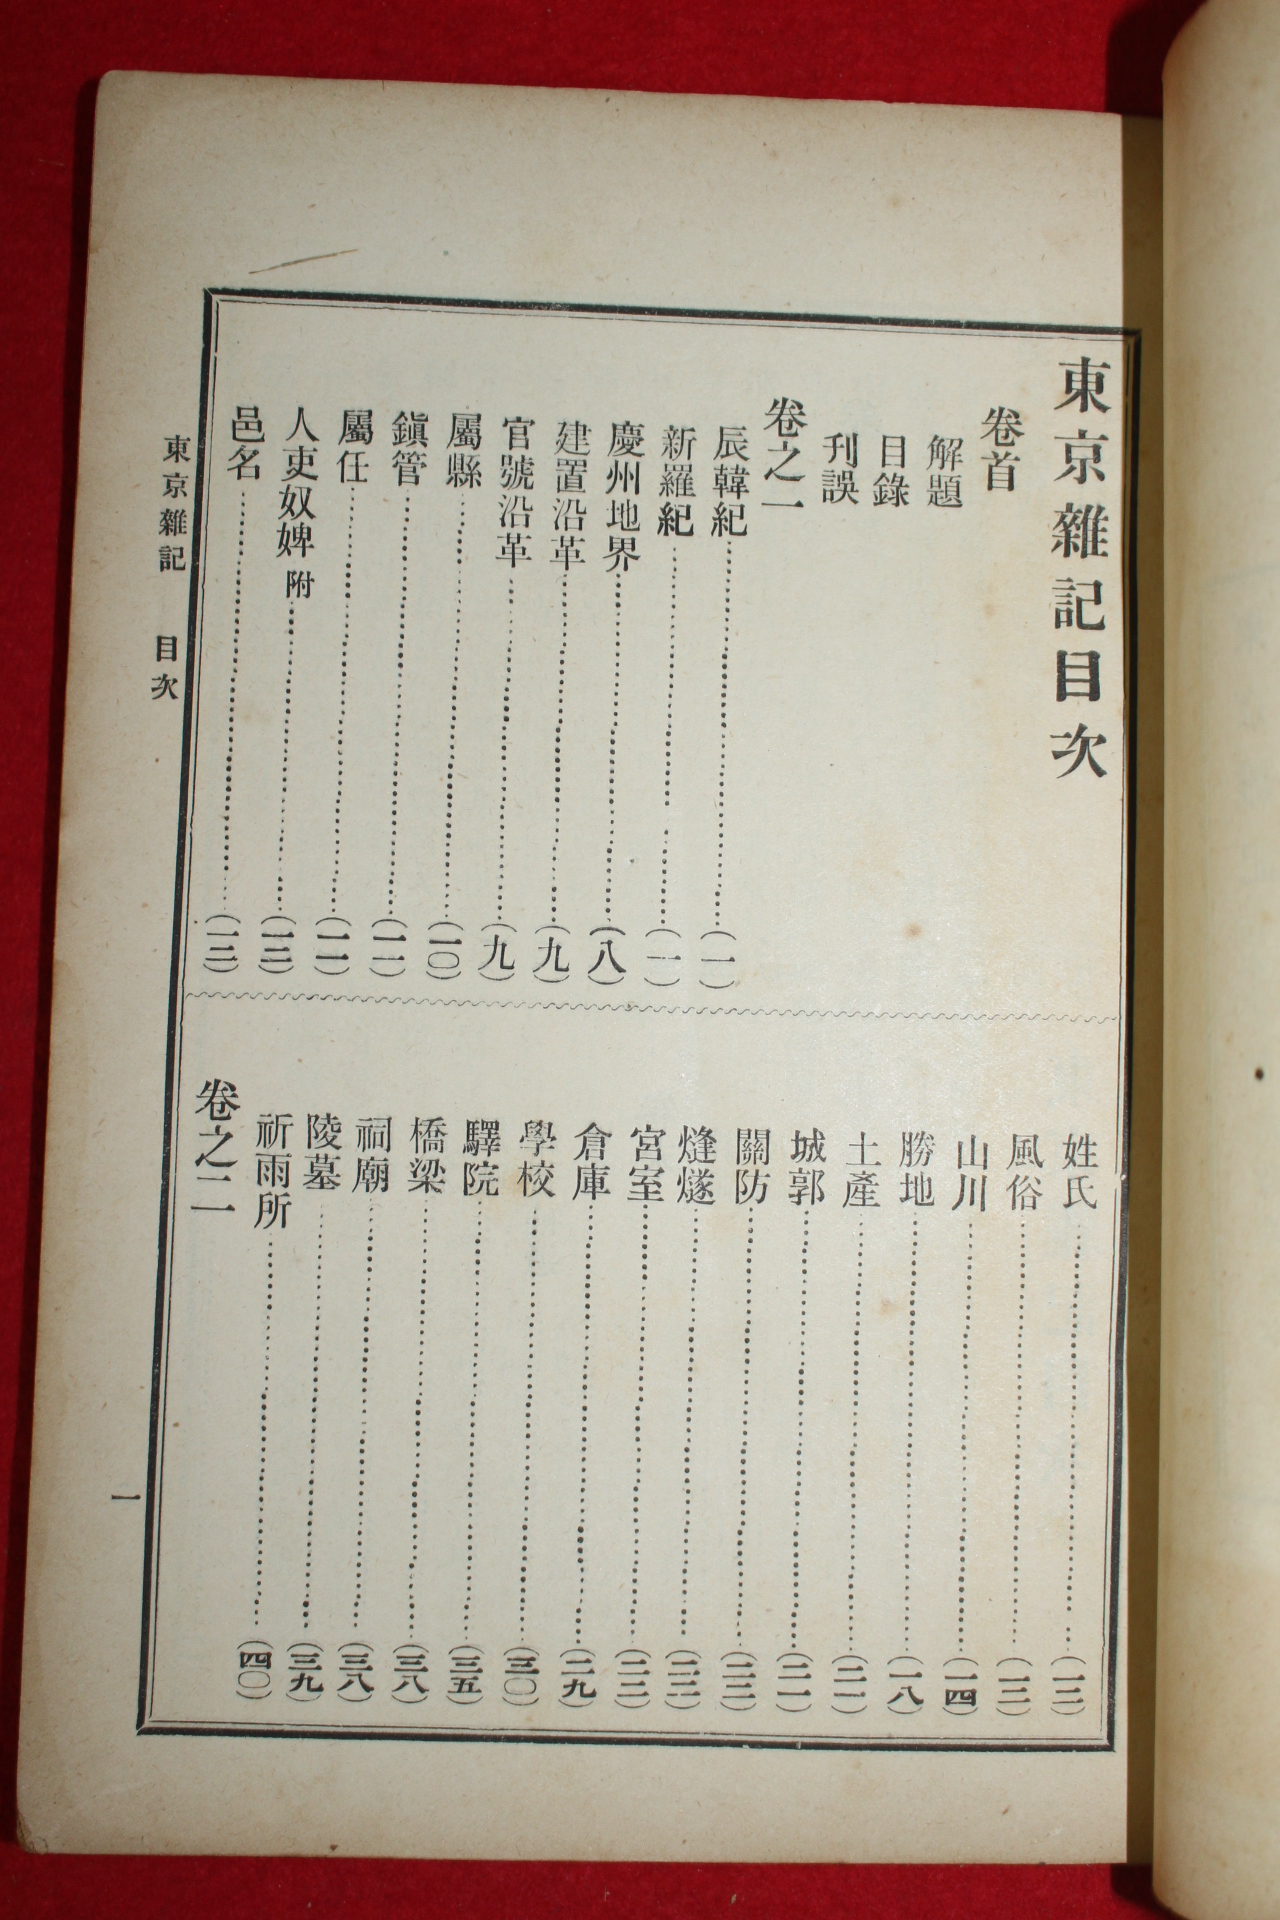 東京雜記目次
卷首
解題
目錄
刊誤
卷之一
辰韓紀……(一)
新羅紀……(一)
慶州地界……(八)
建置沿革……(九)
官號沿革……(九)
屬縣……(一〇)
鎭管……(一一)
屬任……(一一)
人吏奴婢附……(一二)
邑名……(一二)
姓氏……(一二)
風俗……(一二)
山川……(一四)
勝地……(一八)
土產……(二一)
城郭……(二一)
關防……(二二)
熢燧……(二二)
宮室……(二二)
倉庫……(二九)
學校……(三〇)
驛院……(三五)
橋梁……(三八)
祠廟……(三八)
陵墓……(三九)
祈雨所……(四〇)
卷之二
東京雜記 目次
一